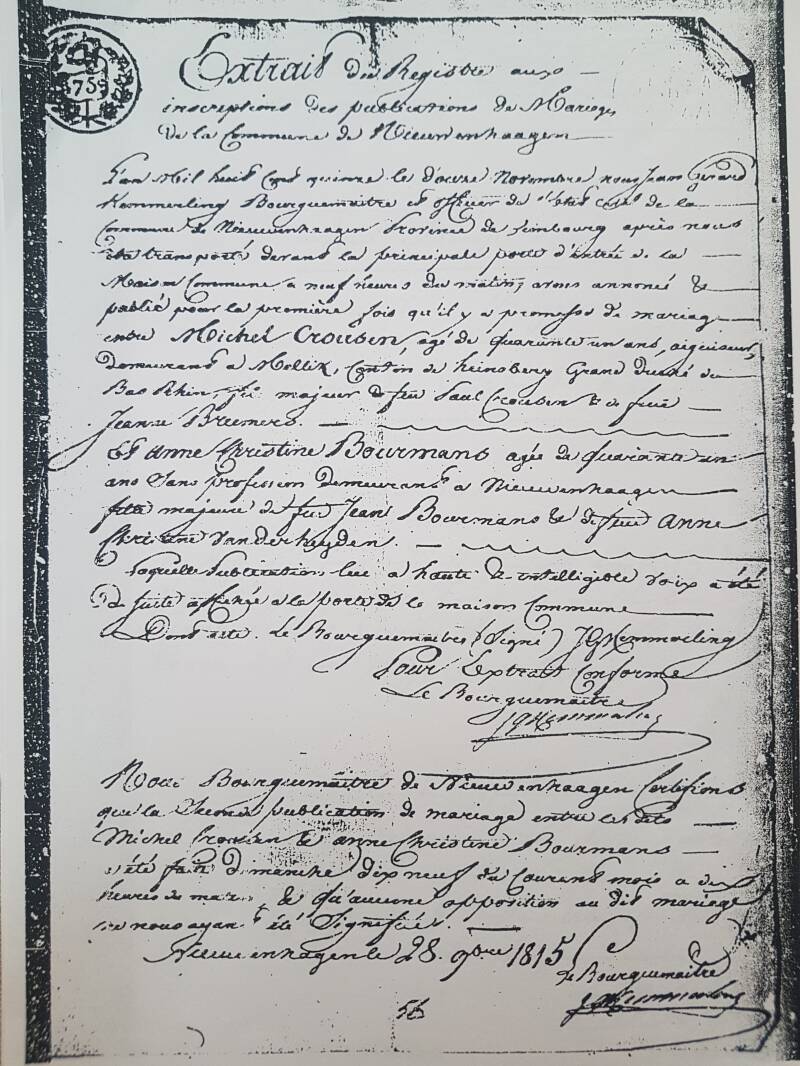 1759
Extrait du Registre aux
inscriptions des publications de Mariages
De la Commune de Nieuwenhaagen
L'an Mil huit cent quinze le douze Novembre nous Jean Gerard
Kemmerling Bourguemaitre et officier de l'état civil de la
Commune de Nieuwenhaagen Province de Limbourg après nous
être transporté devant la principale porte d'entrée de la
Maison Commune a neuf heures du matin, avons annoncé &
publié pour la première fois qu'il y a promesse de mariage
entre Michel Crousen agé de quarante un ans, aiguiseur,
demeurant a Mellik, Canton de heinsberg Grand duché du
Bas Rhin, fils majeur de feu Paul Crousen & de feue
Jeanne Bremers.
Et Anne Christine Bourmans agée de Quarante un
ans sans profession demeurant a Nieuwenhaagen
fille majeure de feu Jean Bourmans & de feue Anne
Christine Vanderheyden.
Laquelle publication lue a haute & intelligible voix a été
de suite affichée a la porte de la maison Commune
Dont acte. Le Bourguemaitre (Signé) JGKemmerling
Pour Extrait Conforme
Le Bourguemaitre
JGKemmerling
Nous Bourguemaitre de Nieuwenhaagen Certifions
que la seconde publication de mariage entre les dits
Michel Crousen & Anne Christine Bourmans
a été faite dimanche dix neuf du Courant mois a
heures du matin & qu'aucune opposition au dit mariage
ne nous ayant été Signifiée.
Nieuwenhagen le 28. 9bre 1815
Le Bourguemaitre
JGKemmerling